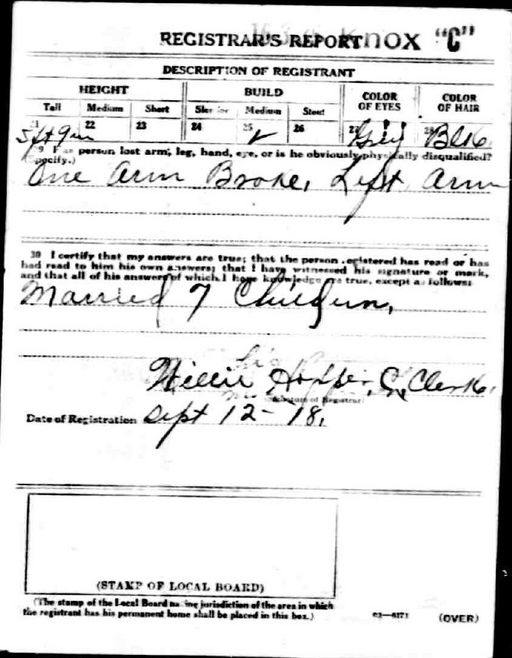 REGISTRAR'S REPORT Knox "C"
DESCRIPTION OF REGISTRANT
HEIGHT BUILD COLOR OF EYES COLOR OF HAIR
Tall Medium Short Slender Medium Stout
21 22 23 24 25 26 27 28
5 ft 9 in ✓ Grey Blk
29 Has person lost arm, leg, hand, eye, or is he obviously physically disqualified?
(Specify.)
One Arm Broke, Left Arm
30 I certify that my answers are true; that the person registered has read or has
had read to him his own answers; that I have witnessed his signature or mark,
and that all of his answers of which I have knowledge are true, except as follows:
Married 7 Children,
his
Willie Hopper, Clerk,
(Signature of Registrar)
Date of Registration Sept 12-18,
(STAMP OF LOCAL BOARD)
(The stamp of the Local Board having jurisdiction of the area in which
the registrant has his permanent home shall be placed in this box.)
03—6171 (OVER)